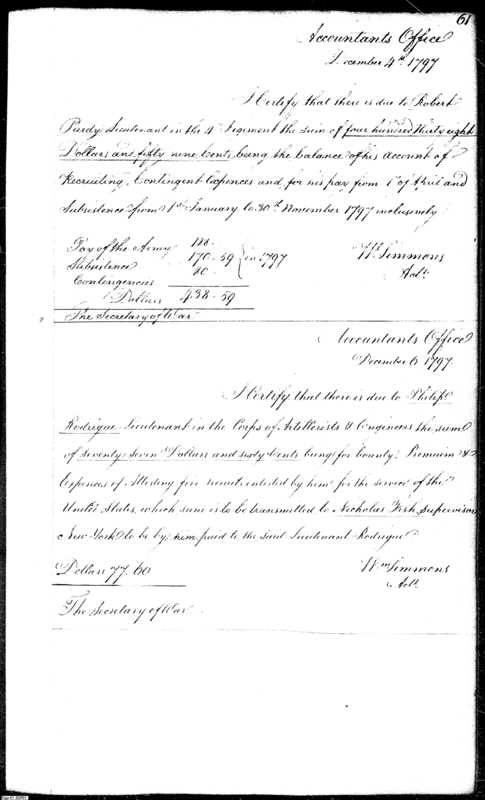 61
Accountants Office
December 4th 1797
I Certify that there is due to Robert
Purdy Lieutenant in the 4th Regiment the sum of four hundred thirty eight
Dollars and fifty nine Cents being the balance of his account of
Recruiting, Contingent Expences and for his pay from 1st of April and
Subsistence from 1st January to 30th November 1797 inclusively
Pay of the Army 188.
Subsistence 170.59 in 1797
Contingencies 80.
Dollars 438.59
Wm Simmons
Actt
The Secretary of War
Accountants Office
December 6 1797.
I Certify that there is due to Philip
Rodrigue Lieutenant in the Corps of Artillerists & Engineers the sum
of seventy seven Dollars and sixty Cents being for bounty, Premium &
Expences of Attesting five recruits enlisted by him for the service of the
United States, which sum is to be transmitted to Nicholas Fish Supervisor
New York to be by him paid to the said Lieutenant Rodrigue
Dollars 77.60
Wm Simmons
Actt
The Secretary of War